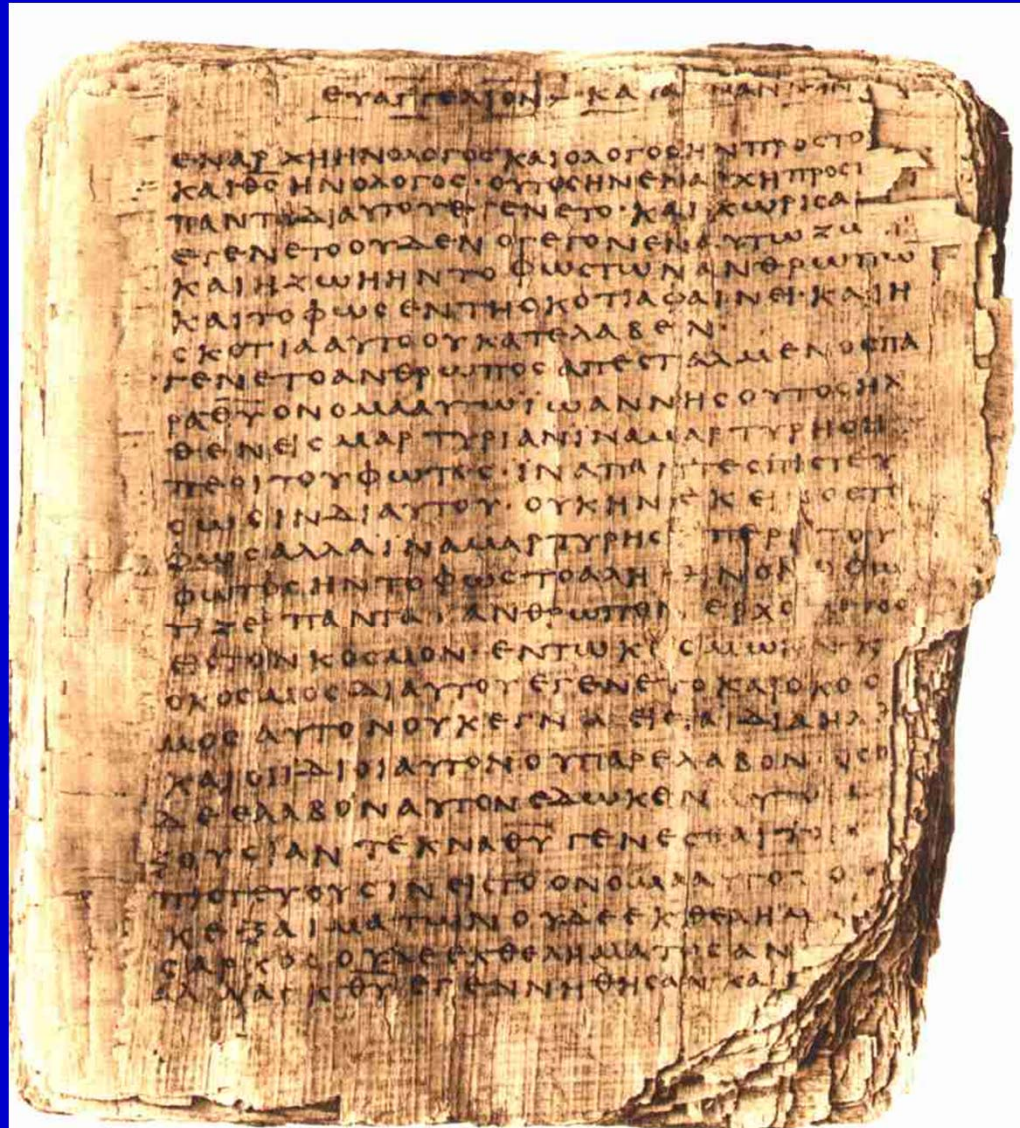 ΕΥΑΓΓΕΛΙΟΝ ΚΑΤΑ
ΕΝΑΡΧΗΗΝΟΛΟΓΟΣΚΑΙΟΛΟΓΟΣΗΝΠΡΟΣΤΟ
ΚΑΙΘΣΗΝΟΛΟΓΟΣ·ΟΥΤΟΣΗΝΕΝΑΡΧΗΠΡΟΣΤ
ΠΑΝΤΑΔΙΑΥΤΟΥΕΓΕΝΕΤΟ·ΚΑΙΧΩΡΙΣΑ
ΕΓΕΝΕΤΟΟΥΔΕΝΟΓΕΓΟΝΕΝΕΝΑΥΤΩΖΩ
ΚΑΙΗΖΩΗΗΝΤΟΦΩΣΤΩΝΑΝΘΡΩΠΩ
ΚΑΙΤΟΦΩΣΕΝΤΗΣΚΟΤΙΑΦΑΙΝΕΙ·ΚΑΙΗ
ΣΚΟΤΙΑΑΥΤΟΟΥΚΑΤΕΛΑΒΕΝ·
ΓΕΝΕΤΟΑΝΘΡΩΠΟΣΑΠΕΣΤΑΛΜΕΝΟΣΠΑ
ΡΑΘΥΟΝΟΜΑΑΥΤΩΙΩΑΝΝΗΣΟΥΤΟΣΗΛ
ΘΕΝΕΙΣΜΑΡΤΥΡΙΑΝΙΝΑΜΑΡΤΥΡΗΣΗ
ΠΕΡΙΤΟΥΦΩΤΟΣ·ΙΝΑΠΑΝΤΕΣΠΙΣΤΕΥ
ΣΩΣΙΝΔΙΑΥΤΟΥ·ΟΥΚΗΝΕΚΕΙΝΟΣΤΟ
ΦΩΣΑΛΛΑΙΝΑΜΑΡΤΥΡΗΣΗ ΠΕΡΙΤΟΥ
ΦΩΤΟΣΗΝΤΟΦΩΣΤΟΑΛΗΘΙΝΟΝΟΦΩ
ΤΙΖΕΙ ΠΑΝΤΑ ΑΝΘΡΩΠΟΝ ΕΡΧΟ
ΕΙΣΤΟΝΚΟΣΜΟΝ·ΕΝΤΩΚΟΣΜΩΗΝΚ
ΟΚΟΣΜΟΣΔΙΑΥΤΟΥΕΓΕΝΕΤΟΚΑΙΟΚΟΣ
ΜΟΣΑΥΤΟΝΟΥΚΕΓΝΩ ΕΙΣΤΑΙΔΙΑΗΛ
ΚΑΙΟΙΙΔΙΟΙΑΥΤΟΝΟΥΠΑΡΕΛΑΒΟΝ·ΟΣΟ
ΔΕΕΛΑΒΟΝΑΥΤΟΝΕΔΩΚΕΝ ΑΥΤΟΙ
ΞΟΥΣΙΑΝΤΕΚΝΑΘΥΓΕΝΕΣΘΑΙΤΟΙ
ΠΙΣΤΕΥΟΥΣΙΝΕΙΣΤΟΟΝΟΜΑΑΥΤΟΥ Ο
ΚΕΞΑΙΜΑΤΩΝΟΥΔΕΕΚΘΕΛΗΜ
ΣΑΡΚΟΣΟΥΔΕΕΚΘΕΛΗΜΑΤΟΣΑΝ
ΑΛΛΑΕΚΘΥΕΓΕΝΝΗΘΗΣΑΝΚΑΙ